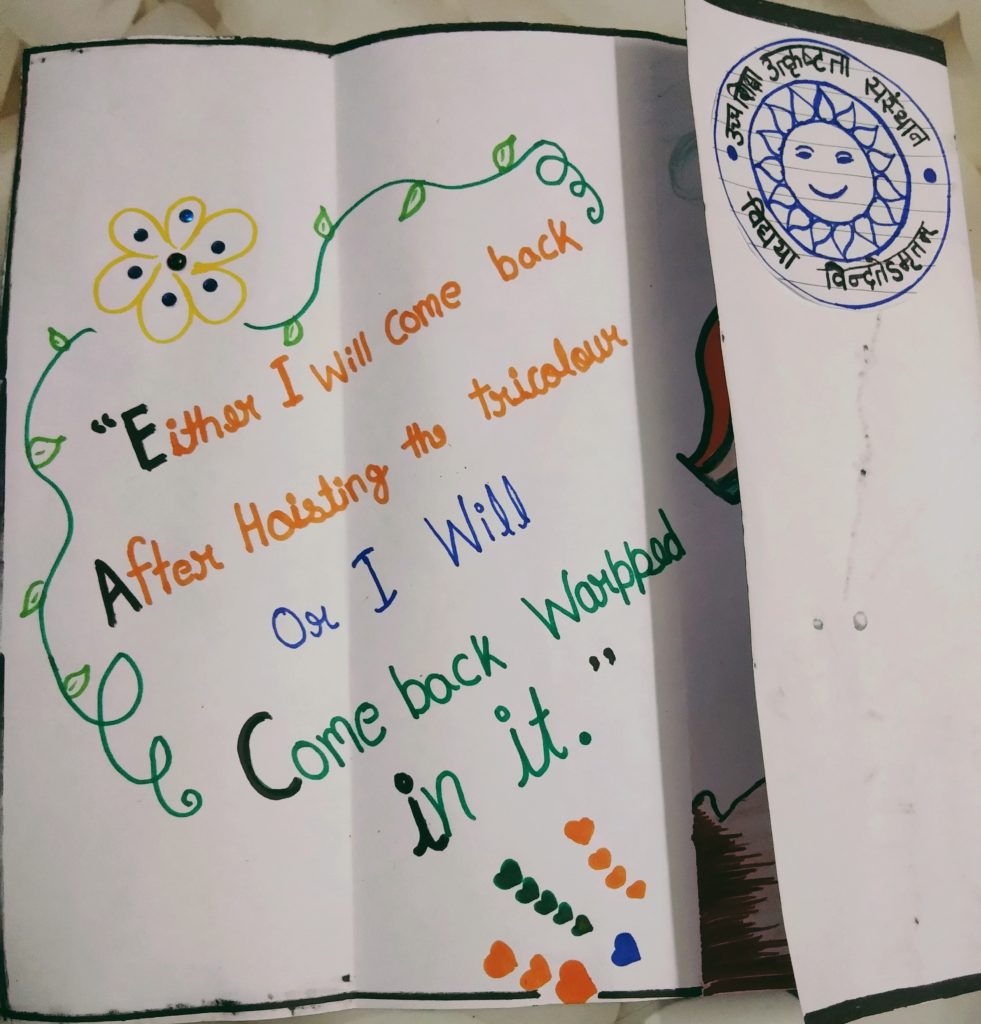 "Either I Will Come back
After Hoisting the tricolour
Or I Will
Come back Warpped
in it."
उच्च शिक्षा उत्कृष्टता संस्थान
विद्यया विन्दतेऽमृतम्